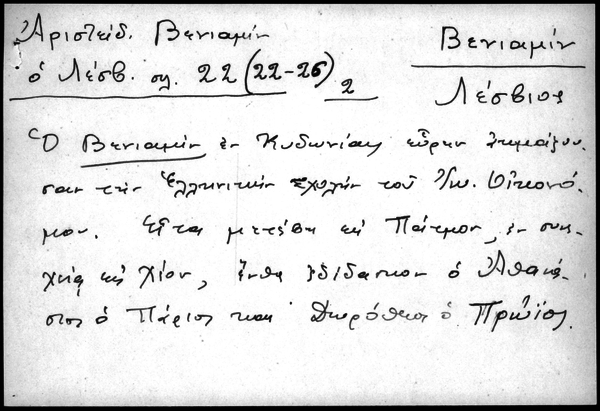 Ἀριστείδ. Βενιαμίν
ὁ Λέσβ. σλ. 22 (22-26) 2
Βενιαμίν
Λέσβιος
Ὁ Βενιαμὶν ἐν Κυδωνίαις εὗρεν ἀκμάζου-
σαν τὴν Ἑλληνικὴν Σχολὴν τοῦ Ἰω. Οἰκονό-
μου. Εἶτα μετέβη εἰς Πάτμον, ἐν συνε-
χείᾳ εἰς Χίον, ἔνθα ἐδίδασκον ὁ Ἀθανά-
σιος ὁ Πάριος καὶ Δωρόθεος ὁ Πρώϊος.